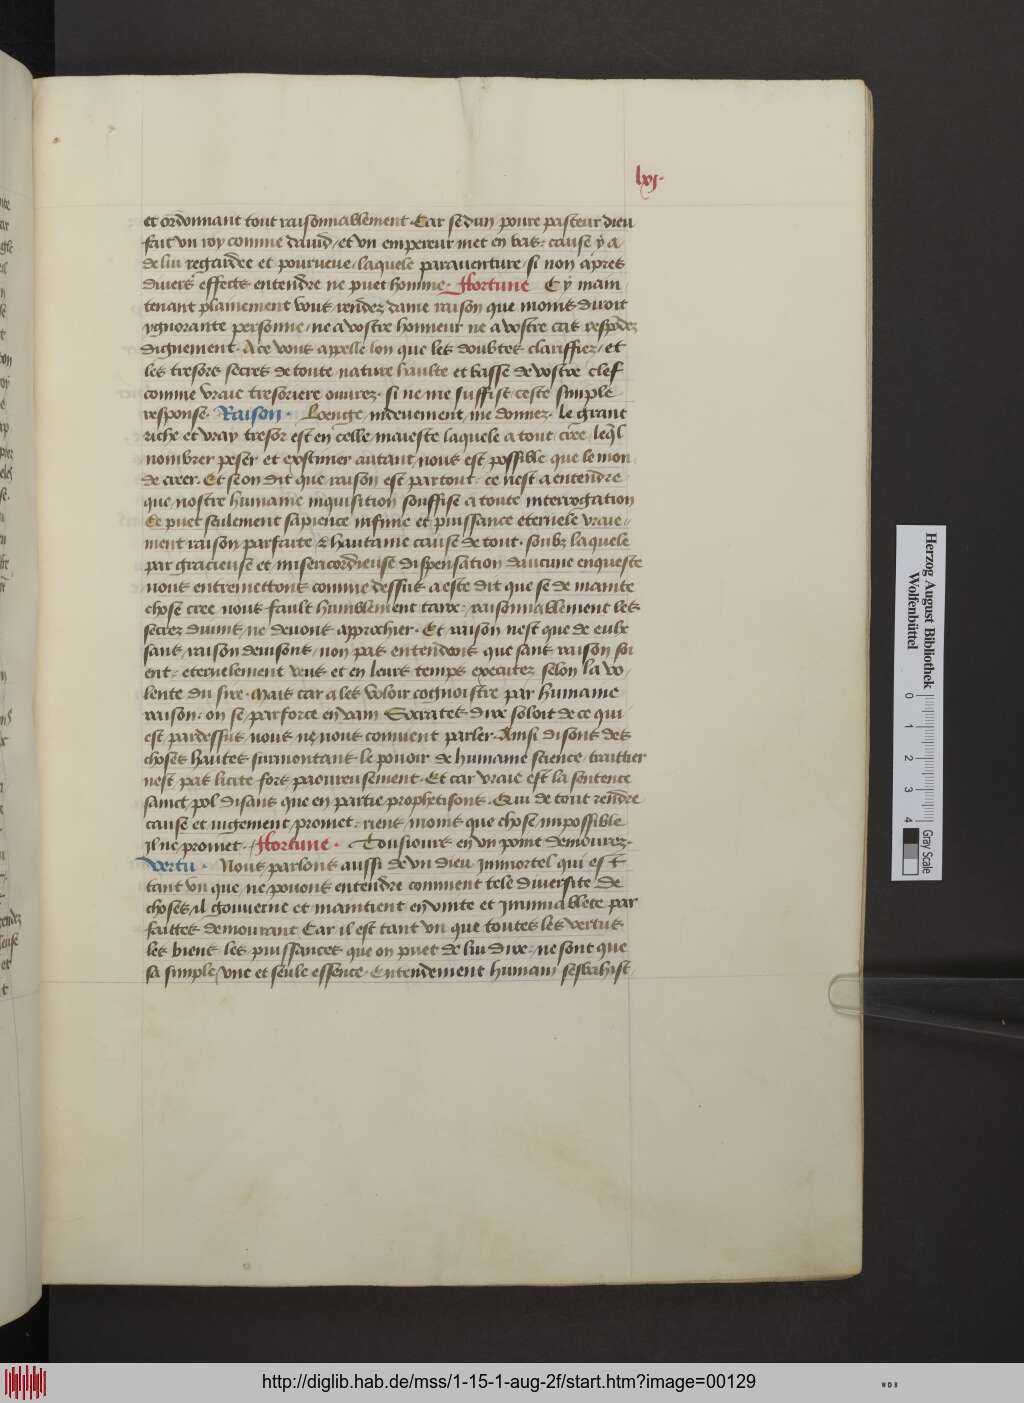 lxj.
et ordonnant tout raisonnablement. Car se dun poure pasteur dieu
fait vn roy comme dauid / et vn empereur met en bas: cause y a
de lui regardee et pourueue / laquele parauenture / si non apres
diuers effects entendre ne puet homme. Ffortune Cy main
tenant plainement vous rendez dame raison que moins diroit
ygnorante personne / ne a vostre honneur ne a vostre cas respōdez
dignement. A ce vous appelle lon que les doubtes clariffiez / et
les tresors secres de toute nature haulte et basse de vostre clef
comme vraie tresoriere ouurez. si ne me suffist ceste simple
response. Raison. Loenge indeuement me donnez. le grant
riche et vray tresor est en celle maieste laquele a tout cree leq̄l
nombrer peser et exstimer autant nous est possible que le mon
de creer. Et se on dit que raison est par tout: ce nest a entendre
que nostre humaine inquisition souffise a toute interrogation
Ce puet seulement sapience infinie et puissance eternele vraie
ment raison parfaite & haultaine cause de tout. soubz laquele
par gracieuse et misericordieuse dispensation daucune enqueste
nous entremettons comme dessus a este dit que se de mainte
chose cree nous fault humblement taire: raisonnablement les
secrez diuins ne deuons approchier. Et raison nest que de eulx
sans raison deuisons / non pas entendons que sans raison soi
ent: eternelement veus et en leurs temps executez selon la vo
lente du sire. Mais car a les voloir cognoistre par humaine
raison: on se parforce en vain Socrates dire soloit de ce qui
est pardessus nous ne nous conuient parler. Ainsi disons des
choses hautes surmontans le pouoir de humaine science traittier
nest pas licite fors paoureusement. Et car vraie est la sentence
sainct pol disans que en partie prophetisons. Qui de tout rendre
cause et iugement promet: riens moins que chose impossible
Il ne promet. Ffortune. Tousiours en vn point demourez.
Vertu. Nous parlons aussi de vn dieu Immortel qui est
tant vn que ne pouons entendre comment tele diuersite de
choses il gouuerne et maintient en vnite et Inmuablete par
faittes demourant Car il est tant vn que toutes les vertus
les biens les puissances que on puet de lui dire: ne sont que
sa simple / vne et seule essence. Entendement humain sesbahist
Herzog August Bibliothek
Wolfenbüttel
0 1 2 3 4
Gray Scale
http://diglib.hab.de/mss/1-15-1-aug-2f/start.htm?image=00129
WDB